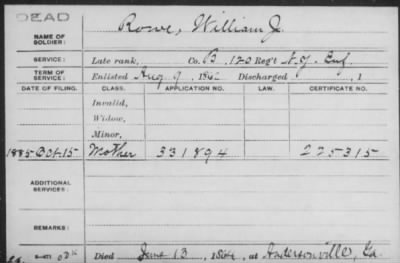 DEAD
NAME OF SOLDIER: Rowe, William J.
SERVICE: Late rank, Co. B, 120 Reg't N.Y. Inf.
TERM OF SERVICE: Enlisted Aug 9, 1862 Discharged , 1
DATE OF FILING. CLASS. APPLICATION NO. LAW. CERTIFICATE NO.
Invalid,
Widow,
Minor,
1885 Oct. 15 Mother 331894 225315
ADDITIONAL SERVICES:
REMARKS:
Died June 13, 1864, at Andersonville, Ga.